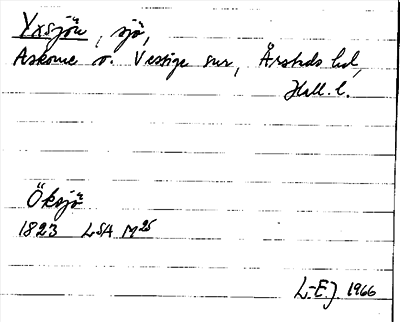 Yxsjön, sjö,
Askome o. Vessige snr, Årstads hd,
Hall. l.
Öksjö
1823 LSA M25
L-E.J. 1966